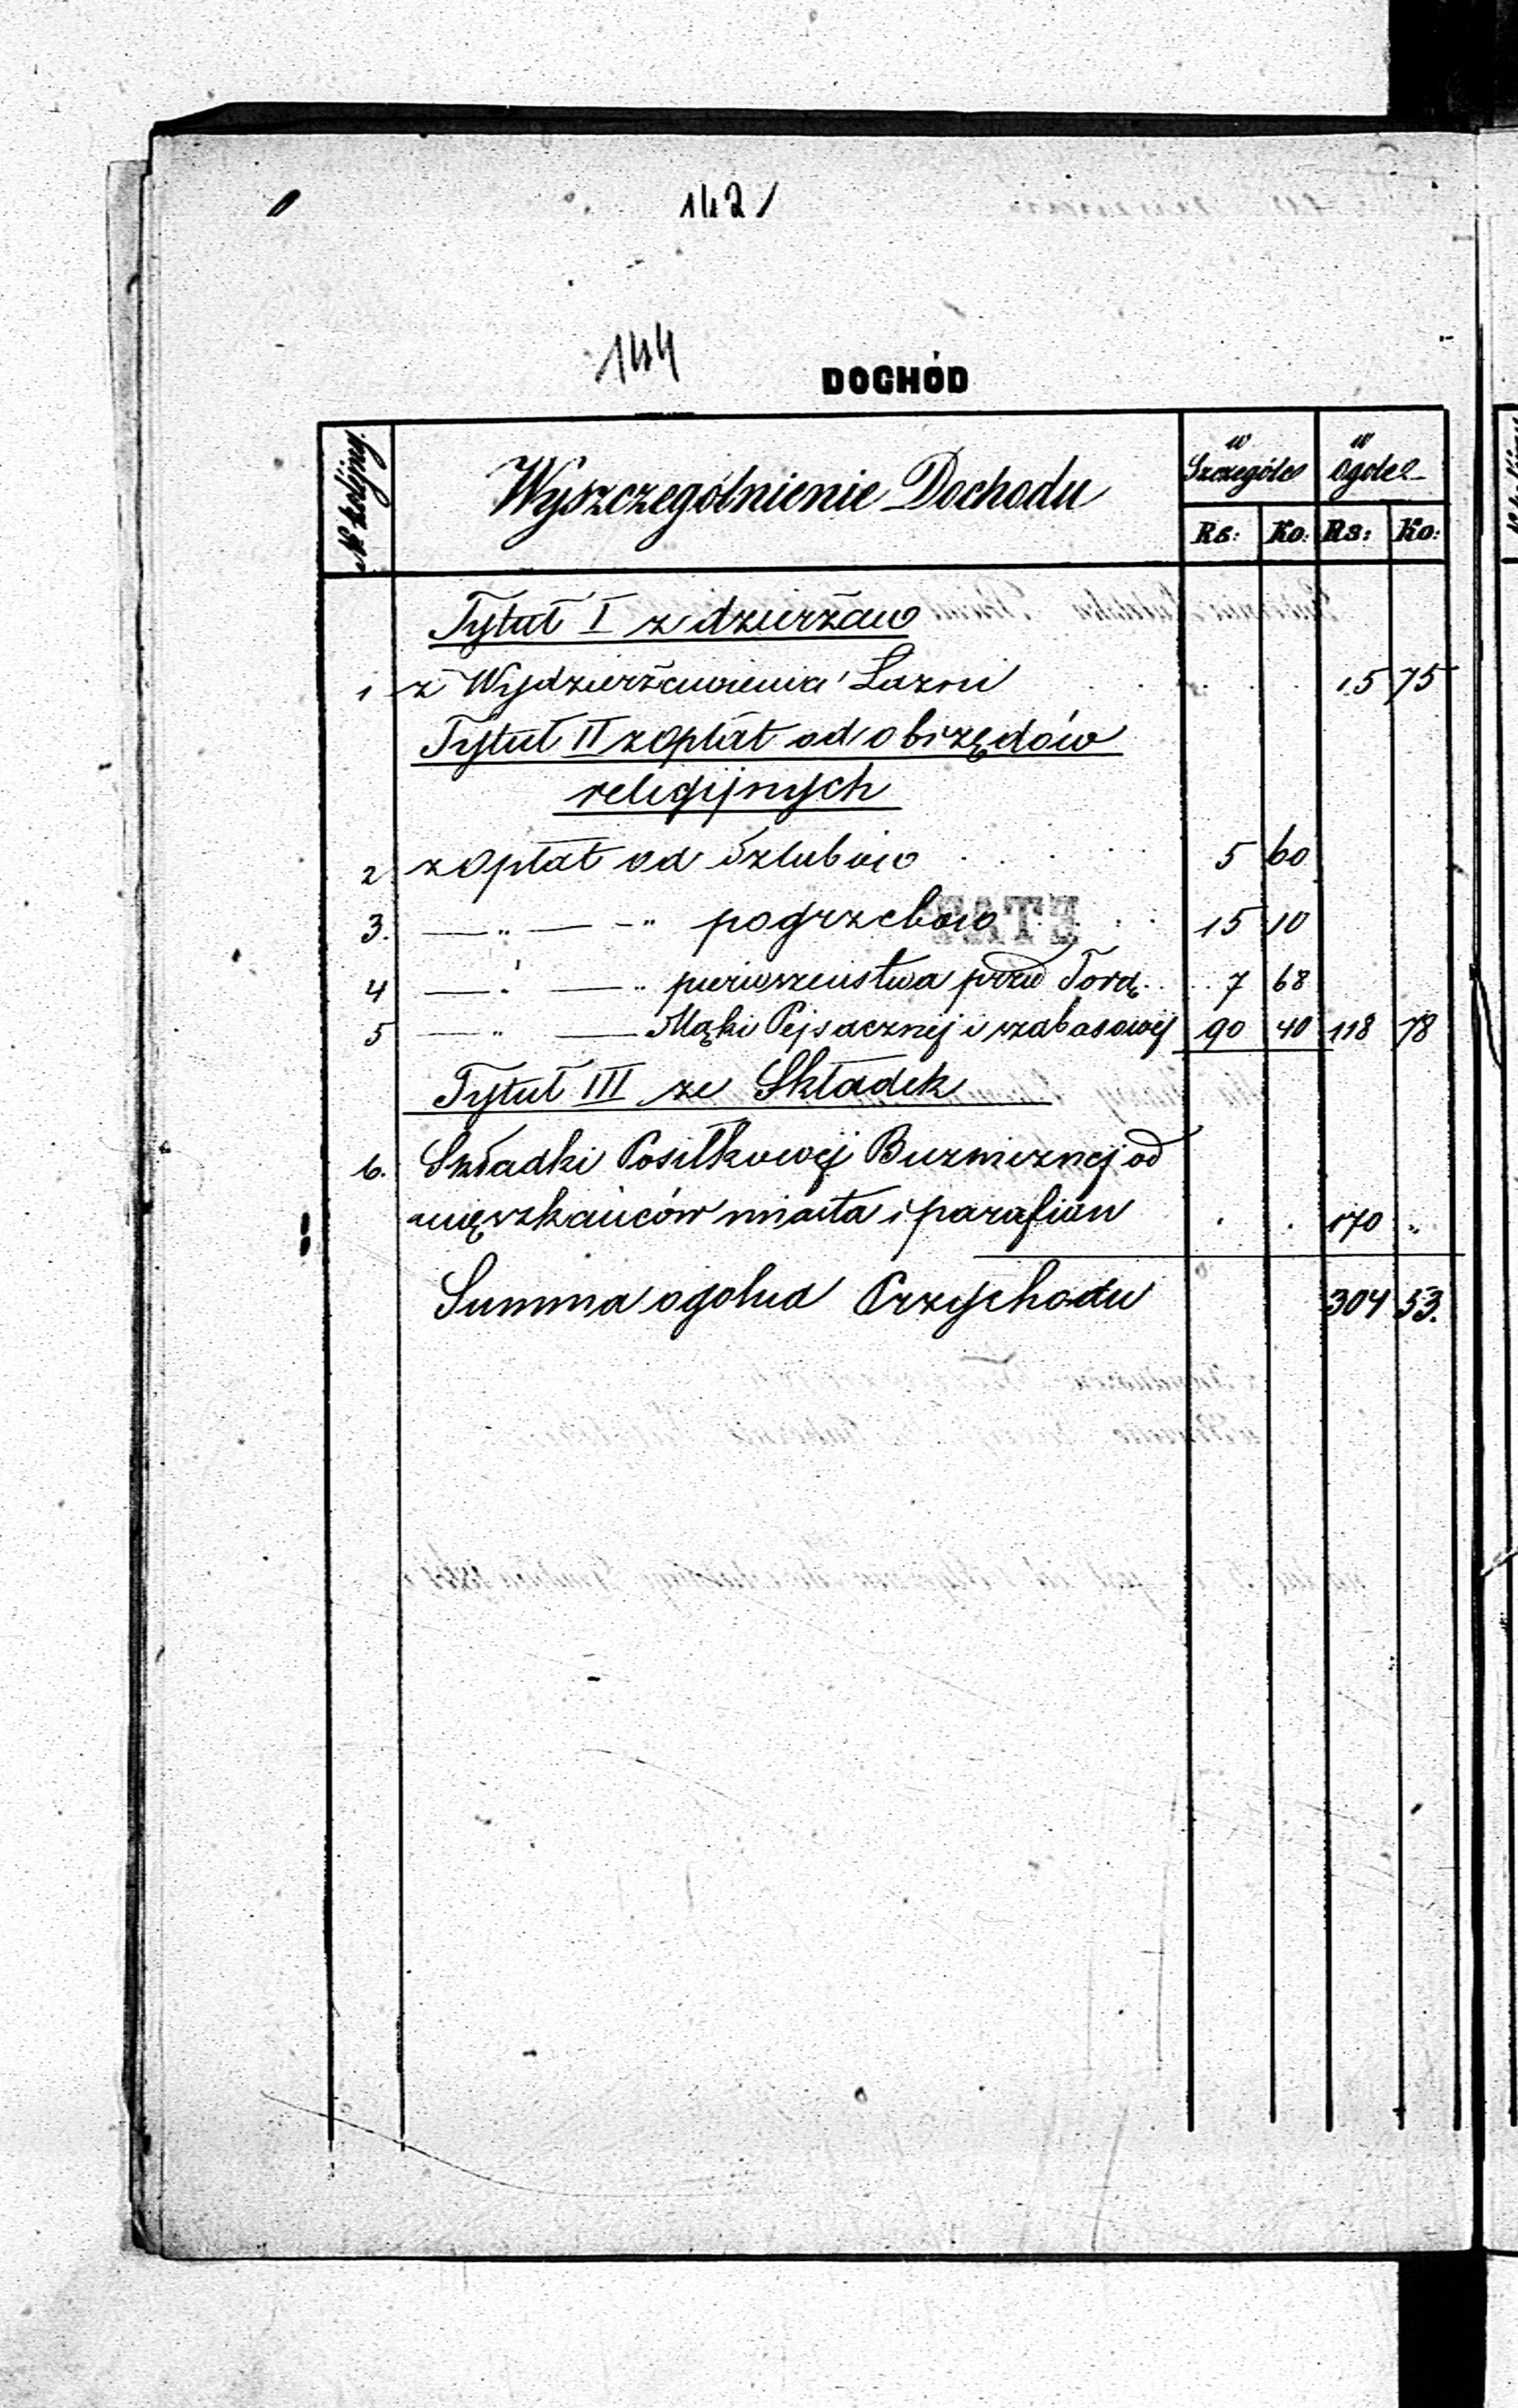 142
144
DOCHÓD
№ kolijny.
Wyszczególnienie Dochodu
w Szczególe
w Ogóle
Rs: Ko: Rs: Ko:
Tytuł I z dzierżaw
1 z Wydzierżawienia Łazni 15 75
Tytuł II z opłat od obrzędów
religijnych
2 z opłat od Szlubów 5 60
3. — „ — „ pogrzebow 15 10
4 — „ — „ pierwszeństwa przed Torą 7 68
5 — „ — Mąki Pejsacznej i szabasowej 90 40 118 78
Tytuł III ze Składek
6. Składki Posiłkowej Buzniznej od
mieszkańców miasta i parafian 170 „
Summa ogolna Przychodu 304 53.